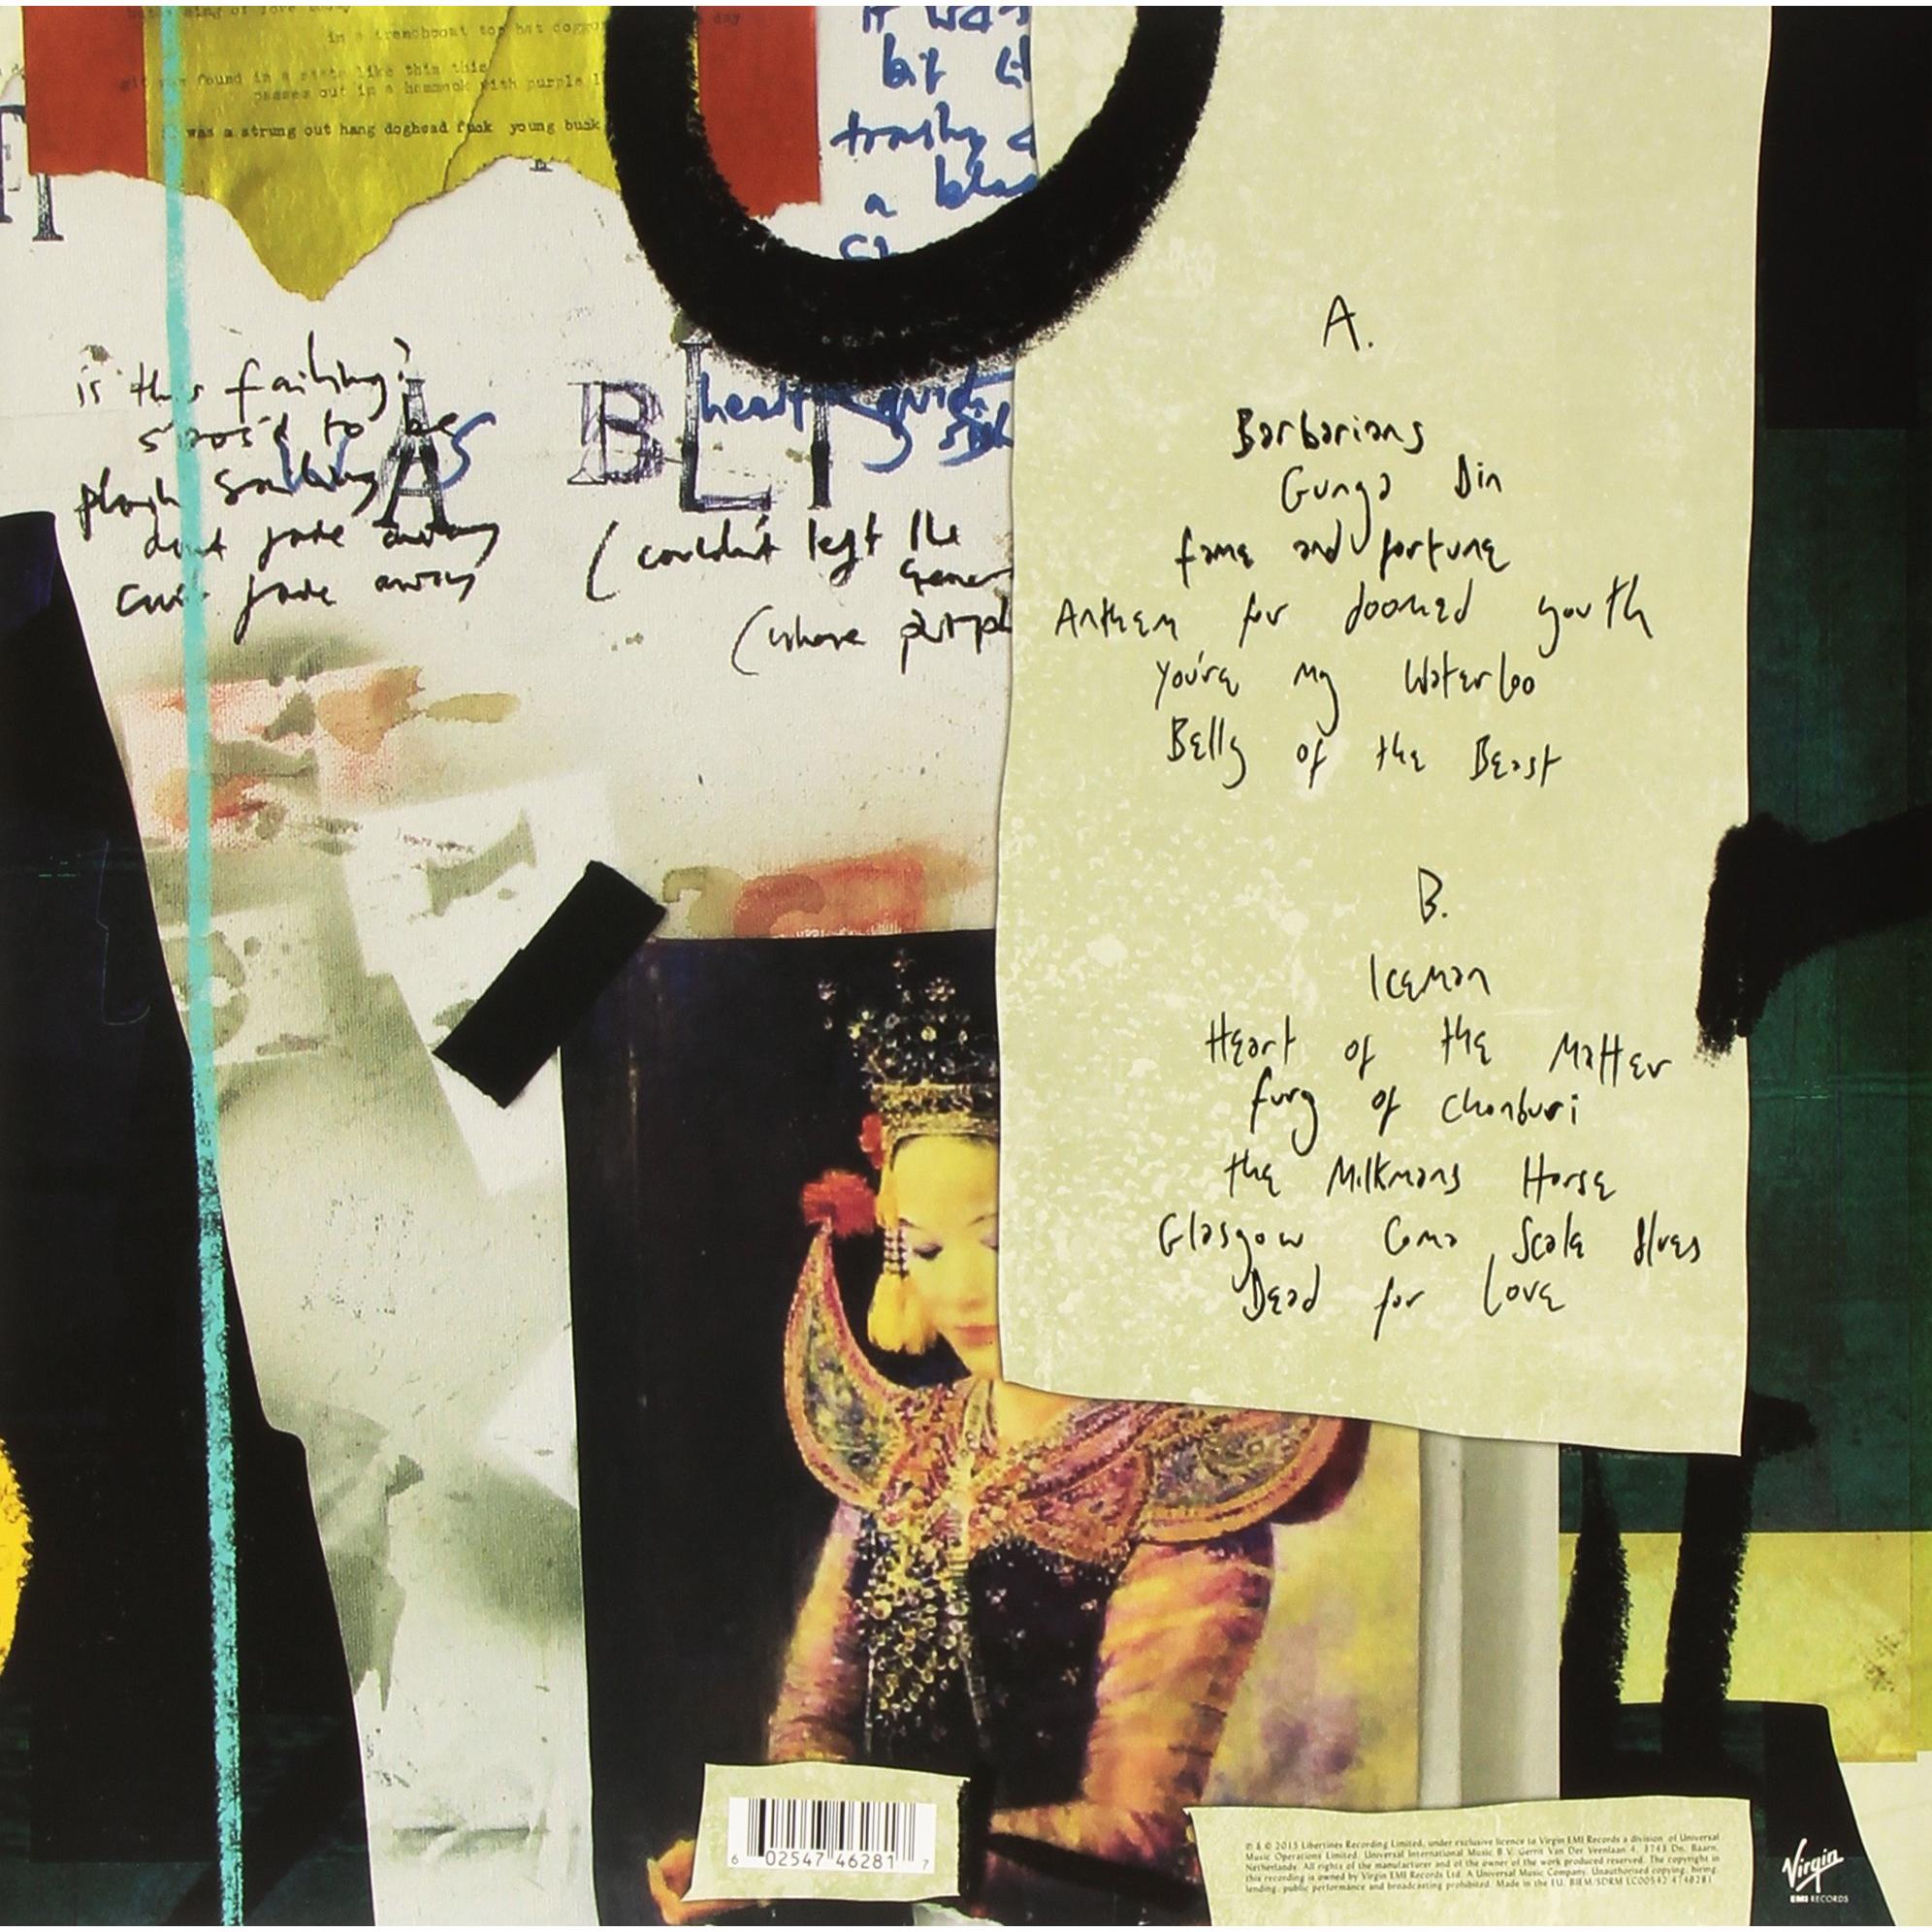 day
in a trenchcoat top hat doggo
found in a like this this
passes out in a hammock with purple
was a strung out hang doghead fuck young buck
it was
bit
trashy
a
is this failing?
s'pos'd to be
plain sailing
dont fade away
cant fade away
A
BLI
heart
(couldn't left the
(where purpl
A.
Barbarians
Gunga Din
fame and fortune
Anthem for doomed youth
You're my Waterloo
Belly of the Beast
B.
Iceman
Heart of the Matter
fury of Chonburi
the Milkmans Horse
Glasgow Coma Scale Blues
Dead for Love
6 02547 46281 7
℗ & © 2015 Libertines Recording Limited, under exclusive licence to Virgin EMI Records a division of Universal
Music Operations Limited. Universal International Music B.V. Gerrit Van Der Veenlaan 4, 3743 Dn, Baarn,
Netherlands. All rights of the manufacturer and of the owner of the work produced reserved. The copyright in
this recording is owned by Virgin EMI Records Ltd. A Universal Music Company. Unauthorised copying, hiring,
lending, public performance and broadcasting prohibited. Made in the EU. BIEM/SDRM LC00542 4748281
Virgin
EMI RECORDS